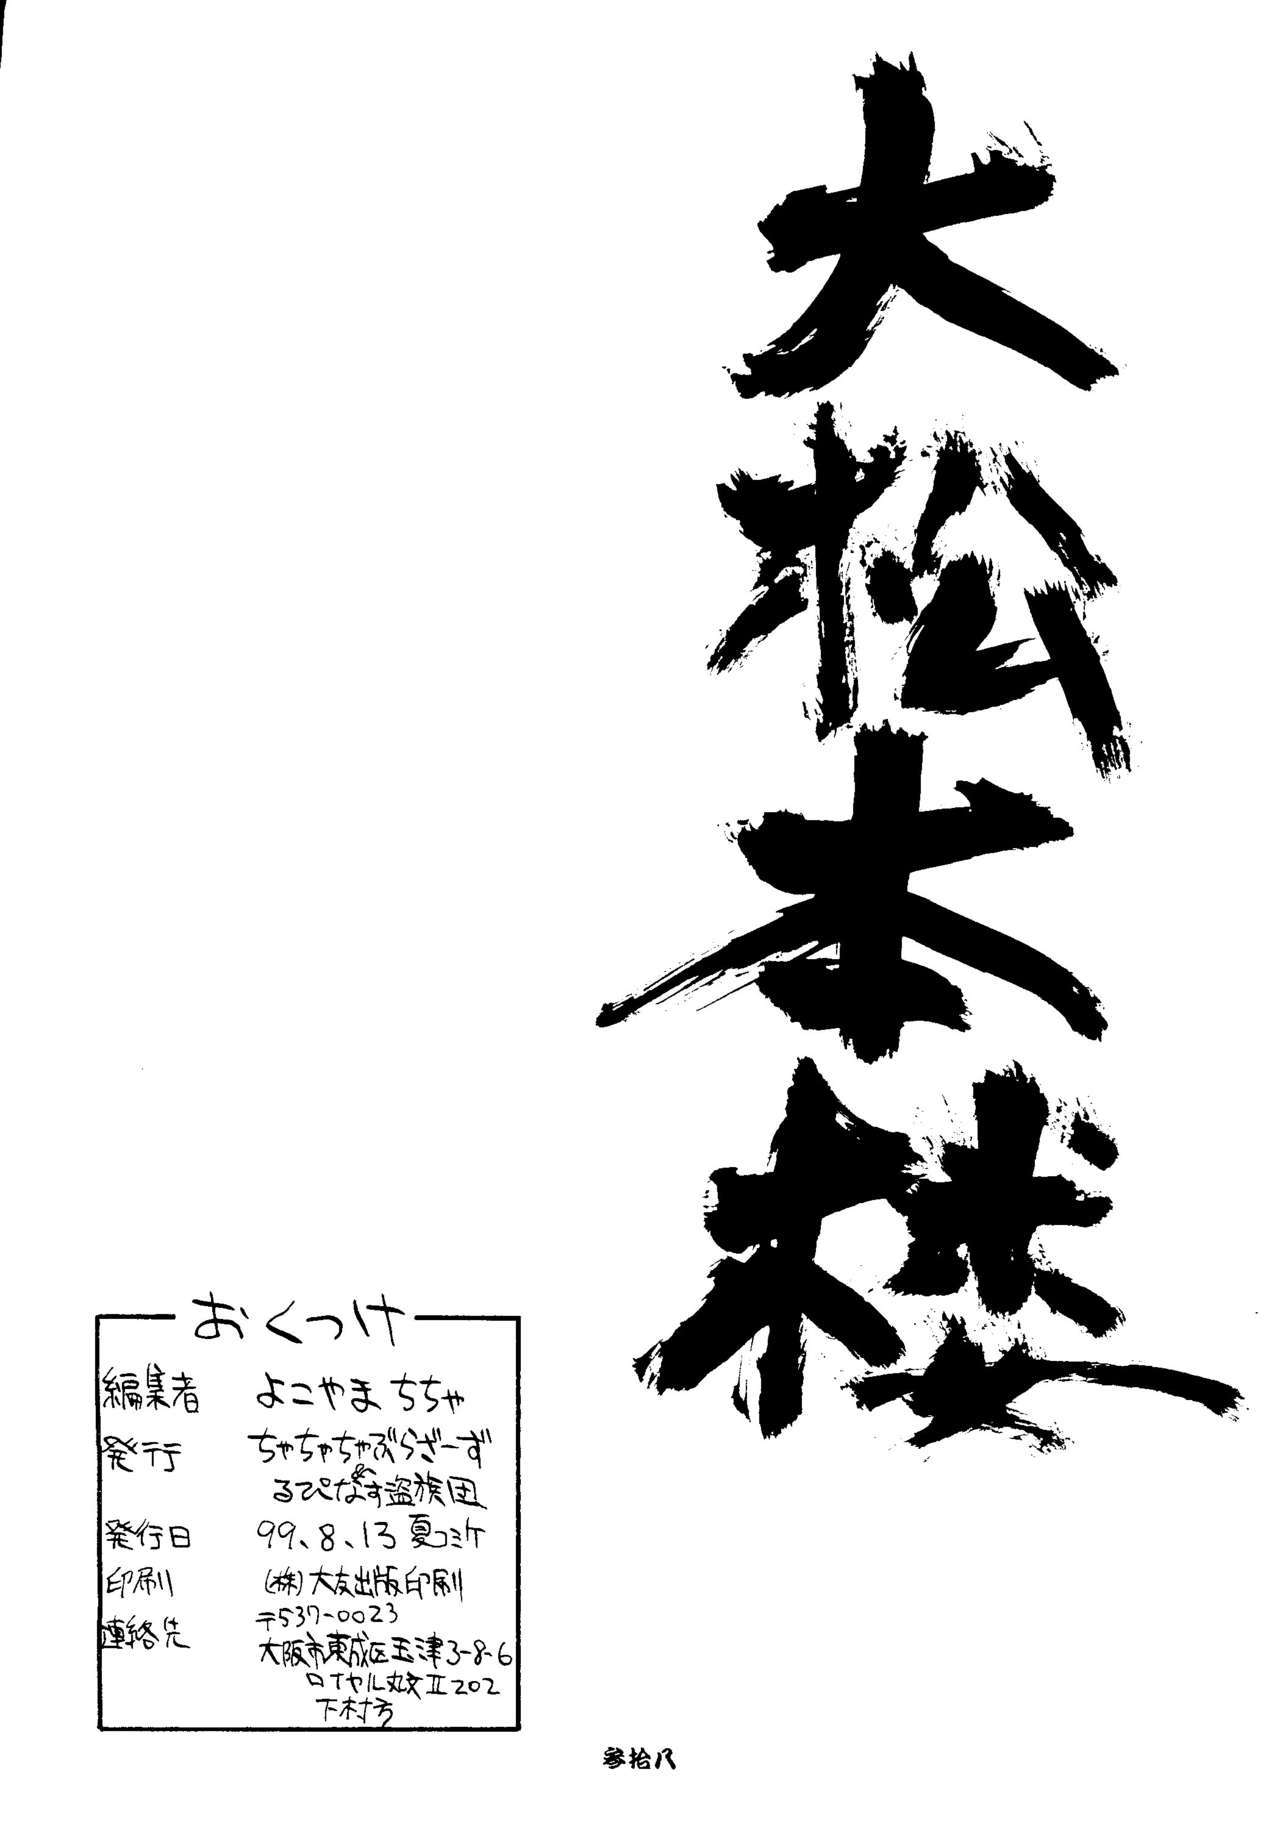 大松本楼
おくつけ
編集者 よこやま ちちゃ
発行 ちゃちゃちゃぶらざーず
&
るぴなす盗族団
発行日 99.8.13 夏コミケ
印刷 (株)大友出版印刷
連絡先 〒537-0023
大阪市東成区玉津3-8-6
ロイヤル丸文II202
下村方
参拾八